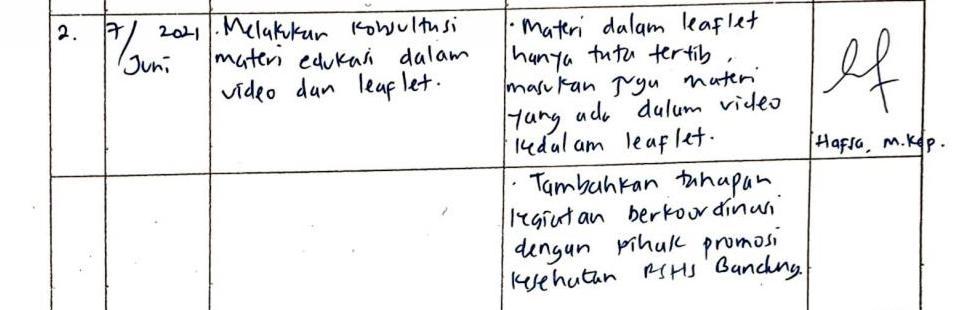 2.
7/ 2021
Juni
. Melakukan konsultasi
materi edukasi dalam
video dan leaflet.
· Materi dalam leaflet
hanya tata tertib,
masukan juga materi
yang ada dalam video
kedalam leaflet.
Hafsa, M.Kep.
· Tambahkan tahapan
kegiatan berkoordinasi
dengan pihak promosi
kesehatan RSHS Bandung.